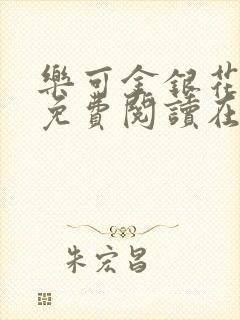 樂可金銀花
免費閱讀在
朱宏昌